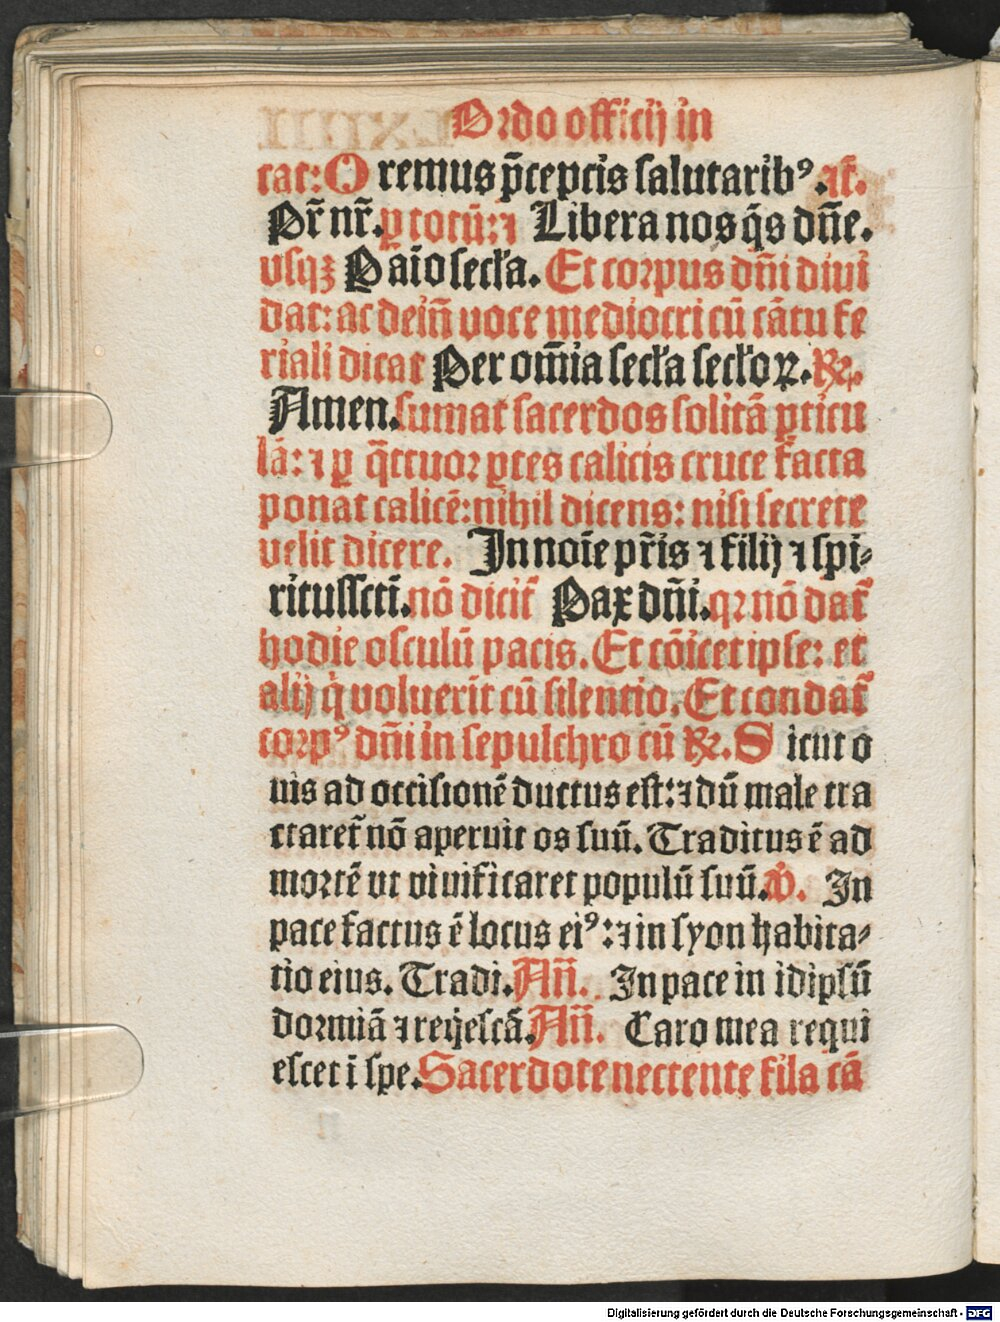 Ordo officij in
cat: O remus p̄ceptis salutarib⁹. ⁊c̄.
Pr̄ nr̄. ꝑ totū: ⁊ Libera nos q̄s dn̄e.
vsqꝫ Oāio secl̄a. Et corpus dn̄i diui
dat: ac dein̄ voce mediocri cū cātu fe
riali dicat Per om̄ia secl̄a secl̄oꝝ. ℟.
Amen. sumat sacerdos solitā ꝑticu
lā: ⁊ ꝑ q̄ttuor ꝑtes calicis cruce facta
ponat calicē: nihil dicens: nisi secrete
velit dicere. In noīe pr̄is ⁊ filij ⁊ spi-
ritussctī. nō dicit̄ Pax dn̄i. qꝛ nō dat̄
hodie osculū pacis. Et cōicet ipse: et
alij q̇ voluerīt cū silentio. Et condat̄
corp⁹ dn̄i in sepulchro cū ℟. S icut o
uis ad occisionē ductus est: ⁊ dū male tra
ctaret̄ nō aperuit os suū. Traditus ē ad
mortē vt viuificaret populū suū. ℣. In
pace factus ē locus ei⁹: ⁊ in syon habita-
tio eius. Tradi. An̄. In pace in idipsū
dormiā ⁊ req̇escā. An̄. Caro mea requi
escet ī spe. Sacerdote nectente fila cā
LXIIII
Digitalisierung gefördert durch die Deutsche Forschungsgemeinschaft - DFG